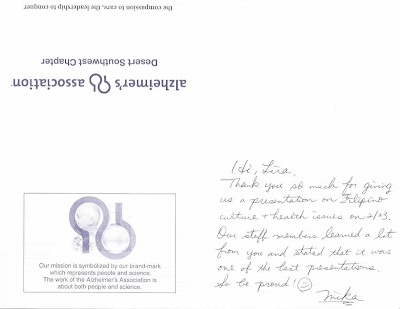 the compassion to care, the leadership to conquer
Desert Southwest Chapter
alzheimer's association
Our mission is symbolized by our brand-mark
which represents people and science.
The work of the Alzheimer's Association is
about both people and science.
Hi, Lira.
Thank you so much for giving
us a presentation on Filipino
culture + health issues on 2/23.
Our staff members learned a lot
from you and stated that it was
one of the best presentations.
So be proud!
Mika